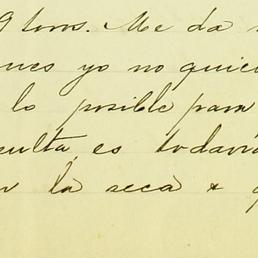 9 toros. Me da
pues yo no quie
lo posible para
culta, es todaví
la seca &